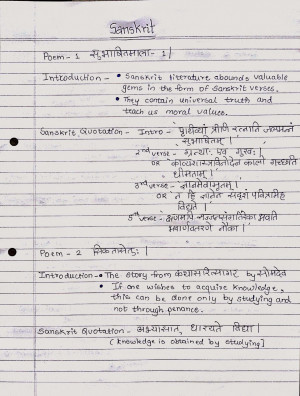 Sanskrit
Poem - 1 सुभाषितमाला - 1 |
Introduction - • Sanskrit literature abounds valuable
gems in the form of Sanskrit verses.
• They contain universal truth and
teach us moral values.
Sanskrit Quotation - Intro - 'पृथिव्यां त्रीणि रत्नानि जलमन्नं
सुभाषितम् |'
2nd verse - एव
OR काव्यशास्त्रविनोदेन कालो गच्छति
धीमताम् |
3rd verse -
OR 'न हि ज्ञानेन सदृशं पवित्रमिह
विद्यते |'
5th verse - भवति
नौका |'
Poem - 2 सिकतासेतुः |
Introduction - • The story from कथासरित्सागर by सोमदेव
• If one wishes to acquire knowledge,
this can be done only by studying and
not through penance.
Sanskrit Quotation - अभ्यासात् धार्यते विद्या |
(knowledge is obtained by studying]